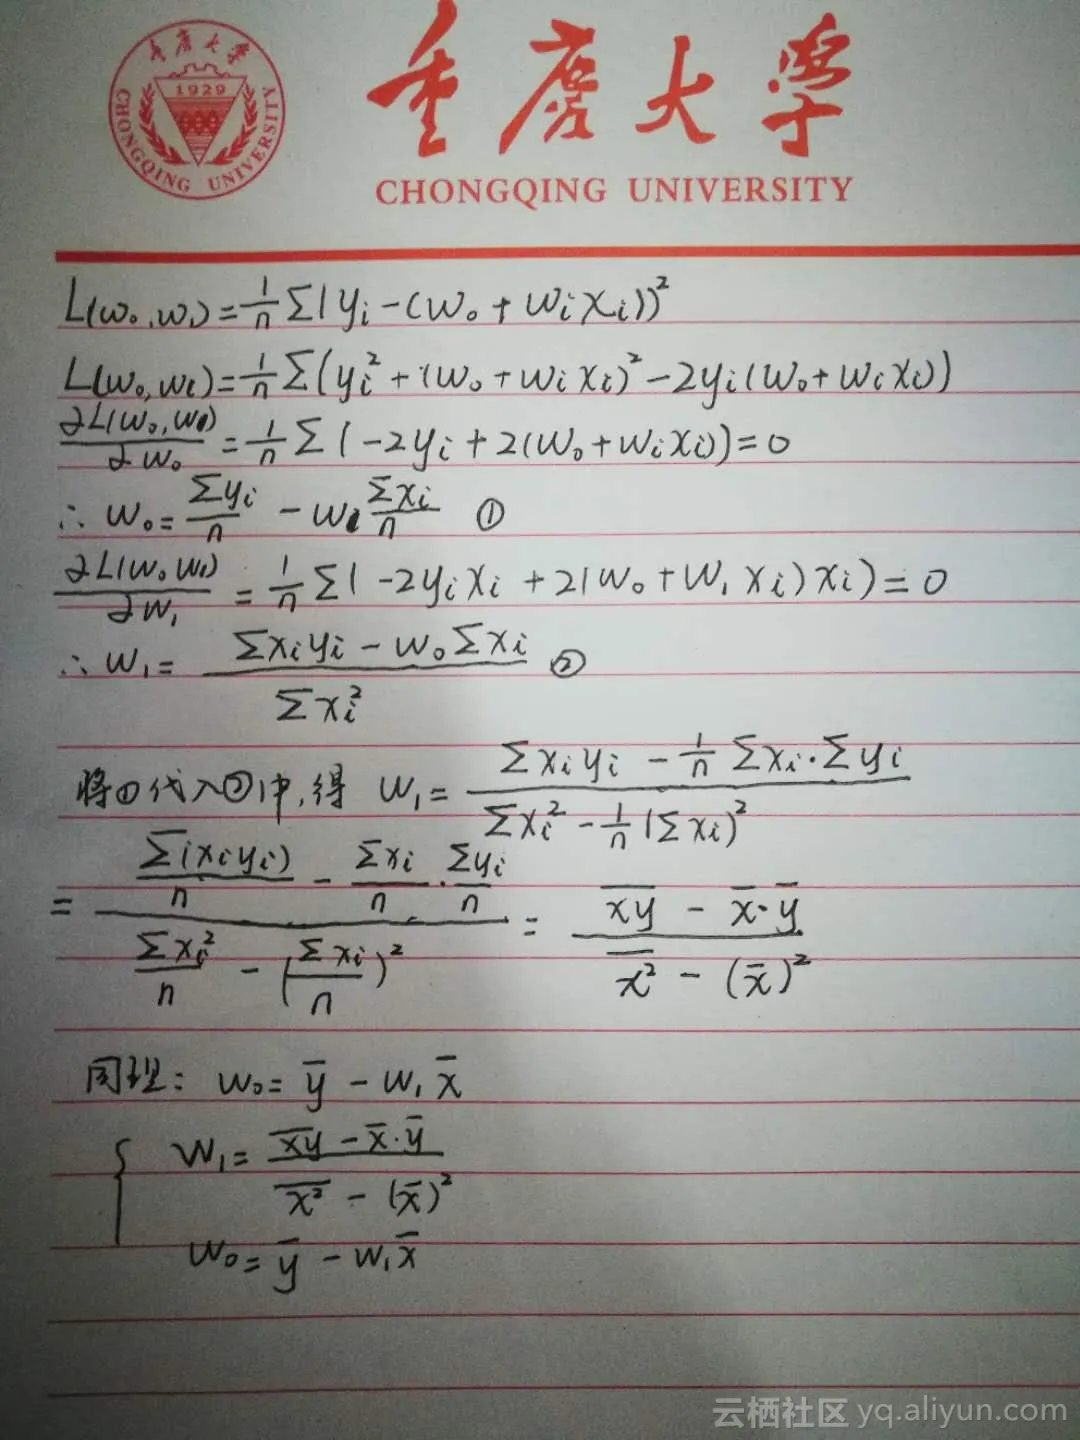 重庆大学
1929
CHONGQING UNIVERSITY
重庆大学
CHONGQING UNIVERSITY
L(w₀,w₁)=1/n Σ(yᵢ-(w₀+wᵢxᵢ))²
L(w₀,wᵢ)=1/n Σ(yᵢ²+(w₀+wᵢxᵢ)²-2yᵢ(w₀+wᵢxᵢ))
∂L(w₀,w₁)/∂w₀=1/n Σ(-2yᵢ+2(w₀+wᵢxᵢ))=0
∴ w₀=Σyᵢ/n - w₁ Σxᵢ/n ①
∂L(w₀,w₁)/∂w₁=1/n Σ(-2yᵢxᵢ+2(w₀+w₁xᵢ)xᵢ)=0
∴ w₁=(Σxᵢyᵢ-w₀Σxᵢ)/Σxᵢ² ②
将①代入②中,得 w₁=(Σxᵢyᵢ-1/n Σxᵢ·Σyᵢ)/(Σxᵢ²-1/n(Σxᵢ)²)
=(Σ(xᵢyᵢ)/n - Σxᵢ/n·Σyᵢ/n)/(Σxᵢ²/n-(Σxᵢ/n)²)=(x̅y̅ - x̅·y̅)/(x̅²̅ - (x̅)²)
同理: w₀=y̅-w₁x̅
{ w₁=(x̅y̅-x̅·y̅)/(x̅²̅-(x̅)²)
w₀=y̅-w₁x̅
云栖社区 yq.aliyun.com